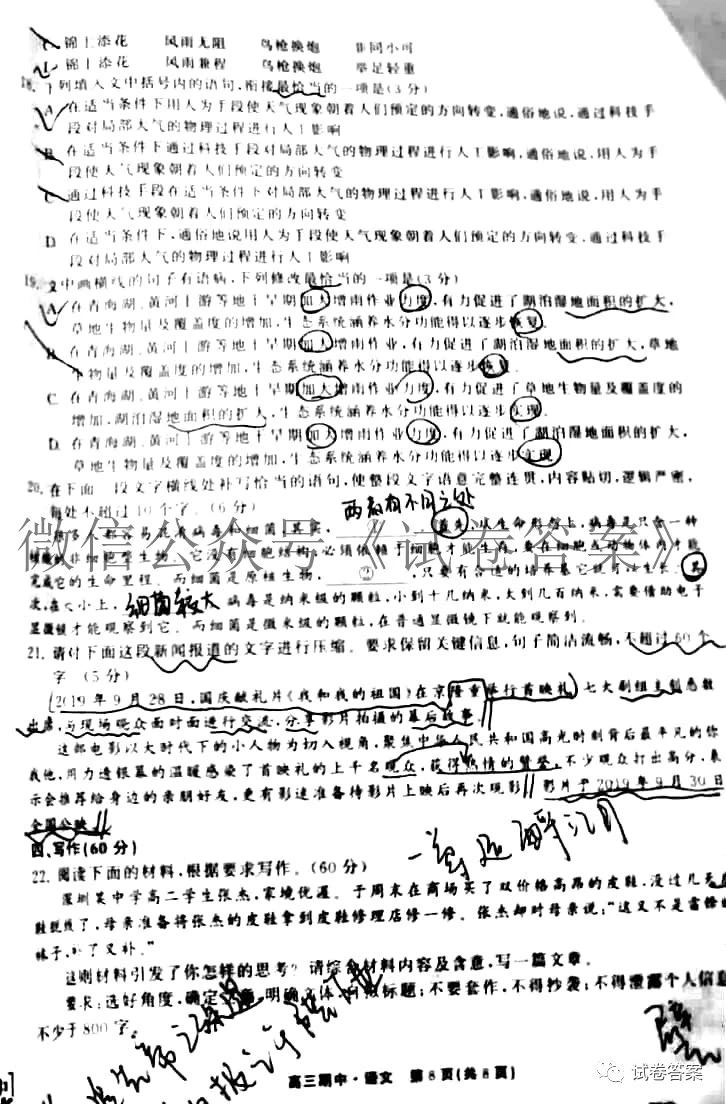 C 锦上添花 风雨无阻 鸟枪换炮 非同小可
D 锦上添花 风雨兼程 鸟枪换炮 举足轻重
18. 下列填入文中括号内的语句,衔接最恰当的一项是(3分)
A 在适当条件下用人为手段使天气现象朝着人们预定的方向转变,通俗地说,通过科技手
段对局部大气的物理过程进行人工影响
B 在适当条件下通过科技手段对局部大气的物理过程进行人工影响,通俗地说,用人为手
段使天气现象朝着人们预定的方向转变
C 通过科技手段在适当条件下对局部大气的物理过程进行人工影响,通俗地说,用人为手
段使天气现象朝着人们预定的方向转变
D 在适当条件下,通俗地说用人为手段使天气现象朝着人们预定的方向转变,通过科技手
段对局部大气的物理过程进行人工影响
19. 文中画横线的句子有语病,下列修改最恰当的一项是(3分)
A 在青海湖、黄河上游等地上早期加大增雨作业力度,有力促进了湖泊湿地面积的扩大,
草地生物量及覆盖度的增加,生态系统涵养水分功能得以逐步恢复。
B 在青海湖、黄河上游等地上早期加大增雨作业,有力促进了湖泊湿地面积的扩大,草地
生物量及覆盖度的增加,生态系统涵养水分功能得以逐步恢复。
C 在青海湖、黄河上游等地上早期加大增雨作业力度,有力促进了草地生物量及覆盖度的
增加,湖泊湿地面积的扩大,生态系统涵养水分功能得以逐步实现。
D 在青海湖、黄河上游等地上早期加大增雨作业力度,有力促进了湖泊湿地面积的扩大,
草地生物量及覆盖度的增加,生态系统涵养水分功能得以逐步实现。
20. 在下面一段文字横线处补写恰当的语句,使整段文字语意完整连贯,内容贴切,逻辑严密,
每处不超过10个字。(6分)
两者有不同之处
微信公众号《试卷答案》
很多人都容易混淆病毒和细菌,其实, ① 。首先,从生命形态上,病毒是只含一种
核酸的非细胞型生物,它没有细胞结构,必须依赖于细胞才能生存,要在细胞生物体内才能
完成它的生命里程。而细菌是原核生物, ② ,只要有合适的培养基它就可以生长。其
次,在大小上, 细菌较大 病毒是纳米级的颗粒,小到十几纳米,大到几百纳米,需要借助电子
显微镜才能观察到它。而细菌是微米级的颗粒,在普通显微镜下就能观察到。
21. 请对下面这段新闻报道的文字进行压缩。要求保留关键信息,句子简洁流畅,不超过60个
字(5分)
2019年9月28日,国庆献礼片《我和我的祖国》在京隆重举行首映礼,七大剧组主创悉数
出席,与现场观众面对面进行交流,分享影片拍摄的幕后故事。
这部电影以大时代下的小人物为切入视角,聚焦中华人民共和国高光时刻背后最平凡的你
我他,用力透银幕的温暖感染了首映礼的上千名观众,获得热情的赞誉。不少观众打出高分,表
示会推荐给身边的亲朋好友,更有影迷准备待影片上映后再次观影。影片于2019年9月30日
全国公映。
四、写作(60分)
22. 阅读下面的材料,根据要求写作。(60分)
深圳某中学高二学生张杰,家境优渥。于周末在商场买了双价格高昂的皮鞋,没过几天皮
鞋脱线了,母亲准备将张杰的皮鞋拿到皮鞋修理店修一修。张杰却对母亲说:“这又不是雷锋的
袜子,补了又补。”
这则材料引发了你怎样的思考?请综合材料内容及含意,写一篇文章。
要求:选好角度,确定立意,明确文体,自拟标题;不要套作,不得抄袭;不得泄露个人信息;
不少于800字。
高三期中·语文 第8页(共8页)
试卷答案